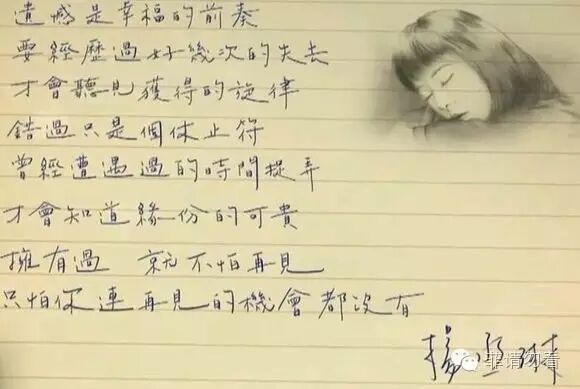 遺憾是幸福的前奏
要經歷過好幾次的失去
才會聽見獲得的旋律
錯過只是個休止符
曾經遭遇過的時間捉弄
才會知道緣份的可貴
擁有過 就不怕再見
只怕你連再見的機會都沒有
楊丞琳
菲请勿看